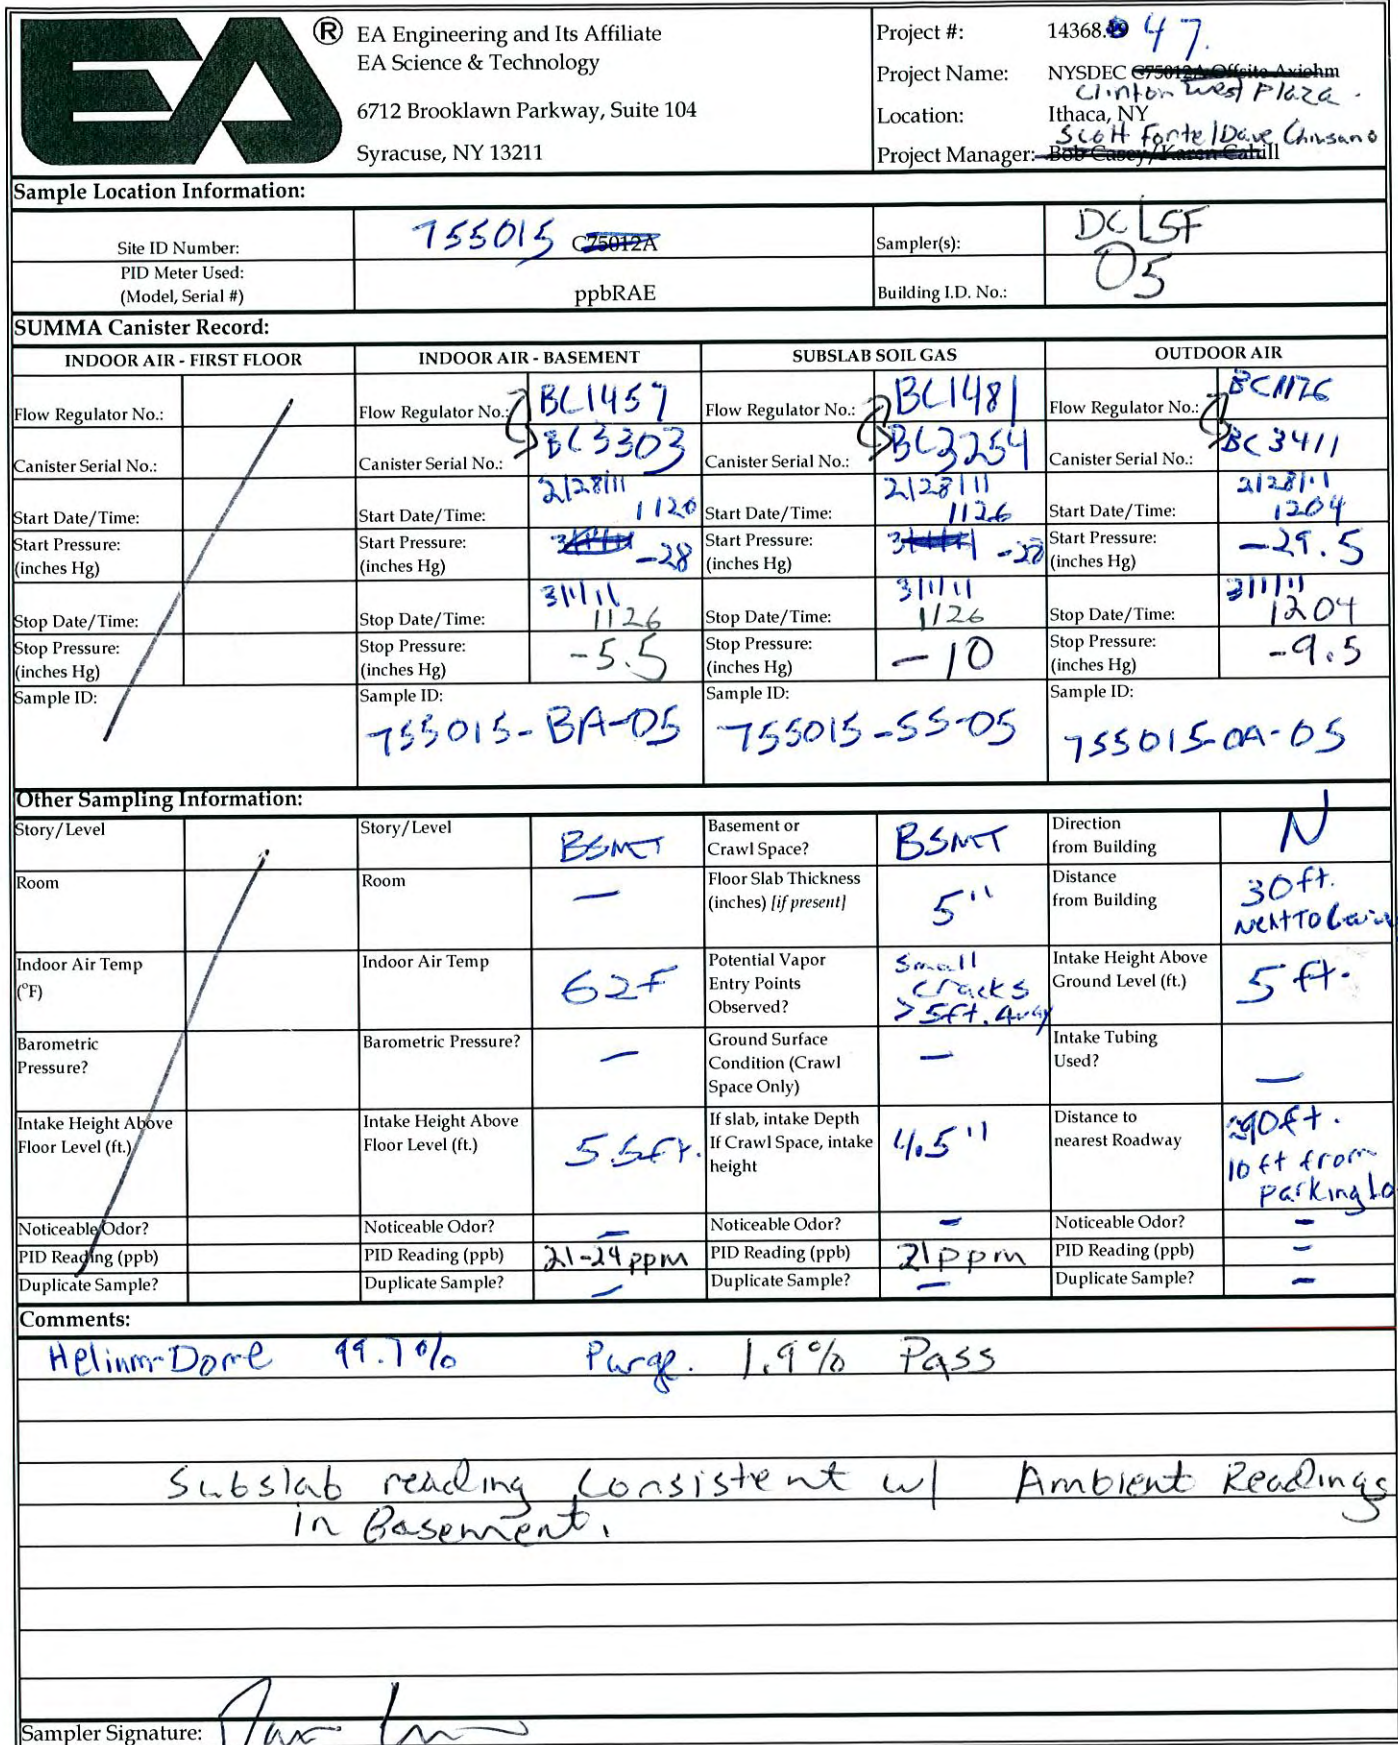 EA ® EA Engineering and Its Affiliate
EA Science & Technology
6712 Brooklawn Parkway, Suite 104
Syracuse, NY 13211
Project #: 14368. 47.
Project Name: NYSDEC C75012A Offsite Axiohm
Clinton West Plaza.
Location: Ithaca, NY
Scott Fonte/Dave Chiusano
Project Manager: Bob Casey/Karen Cahill
Sample Location Information:
Site ID Number: 755015 C75012A Sampler(s): DC/SF
PID Meter Used:
(Model, Serial #) ppbRAE Building I.D. No.: 05
SUMMA Canister Record:
INDOOR AIR - FIRST FLOOR INDOOR AIR - BASEMENT SUBSLAB SOIL GAS OUTDOOR AIR
Flow Regulator No.: Flow Regulator No.: BC1457 Flow Regulator No.: BC1481 Flow Regulator No.: BC1176
Canister Serial No.: Canister Serial No.: BC3303 Canister Serial No.: BC3254 Canister Serial No.: BC3411
Start Date/Time: Start Date/Time: 2/28/11 1120 Start Date/Time: 2/28/11 1126 Start Date/Time: 2/28/11 1204
Start Pressure: Start Pressure: -28 Start Pressure: -28 Start Pressure: -29.5
(inches Hg) (inches Hg) (inches Hg) (inches Hg)
Stop Date/Time: Stop Date/Time: 3/1/11 1126 Stop Date/Time: 3/1/11 1126 Stop Date/Time: 3/1/11 1204
Stop Pressure: Stop Pressure: -5.5 Stop Pressure: -10 Stop Pressure: -9.5
(inches Hg) (inches Hg) (inches Hg) (inches Hg)
Sample ID: Sample ID: Sample ID: Sample ID:
755015-BA-05 755015-SS-05 755015-OA-05
Other Sampling Information:
Story/Level Story/Level BSMT Basement or Crawl Space? BSMT Direction from Building N
Room Room — Floor Slab Thickness (inches) [if present] 5" Distance from Building 30ft. Next To
Indoor Air Temp (°F) Indoor Air Temp 62F Potential Vapor Entry Points Observed? Small cracks >5ft. Away Intake Height Above Ground Level (ft.) 5 ft.
Barometric Pressure? Barometric Pressure? — Ground Surface Condition (Crawl Space Only) — Intake Tubing Used? —
Intake Height Above Floor Level (ft.) Intake Height Above Floor Level (ft.) 5.5ft. If slab, intake Depth If Crawl Space, intake height 4.5" Distance to nearest Roadway 90ft. 10 ft from parking lo
Noticeable Odor? Noticeable Odor? — Noticeable Odor? — Noticeable Odor? —
PID Reading (ppb) PID Reading (ppb) 21-24ppm PID Reading (ppb) 21ppm PID Reading (ppb) —
Duplicate Sample? Duplicate Sample? — Duplicate Sample? — Duplicate Sample? —
Comments:
Helium-Dome 99.7% Purge. 1.9% Pass
Subslab reading Consistent w/ Ambient Readings
in Basement.
Sampler Signature: